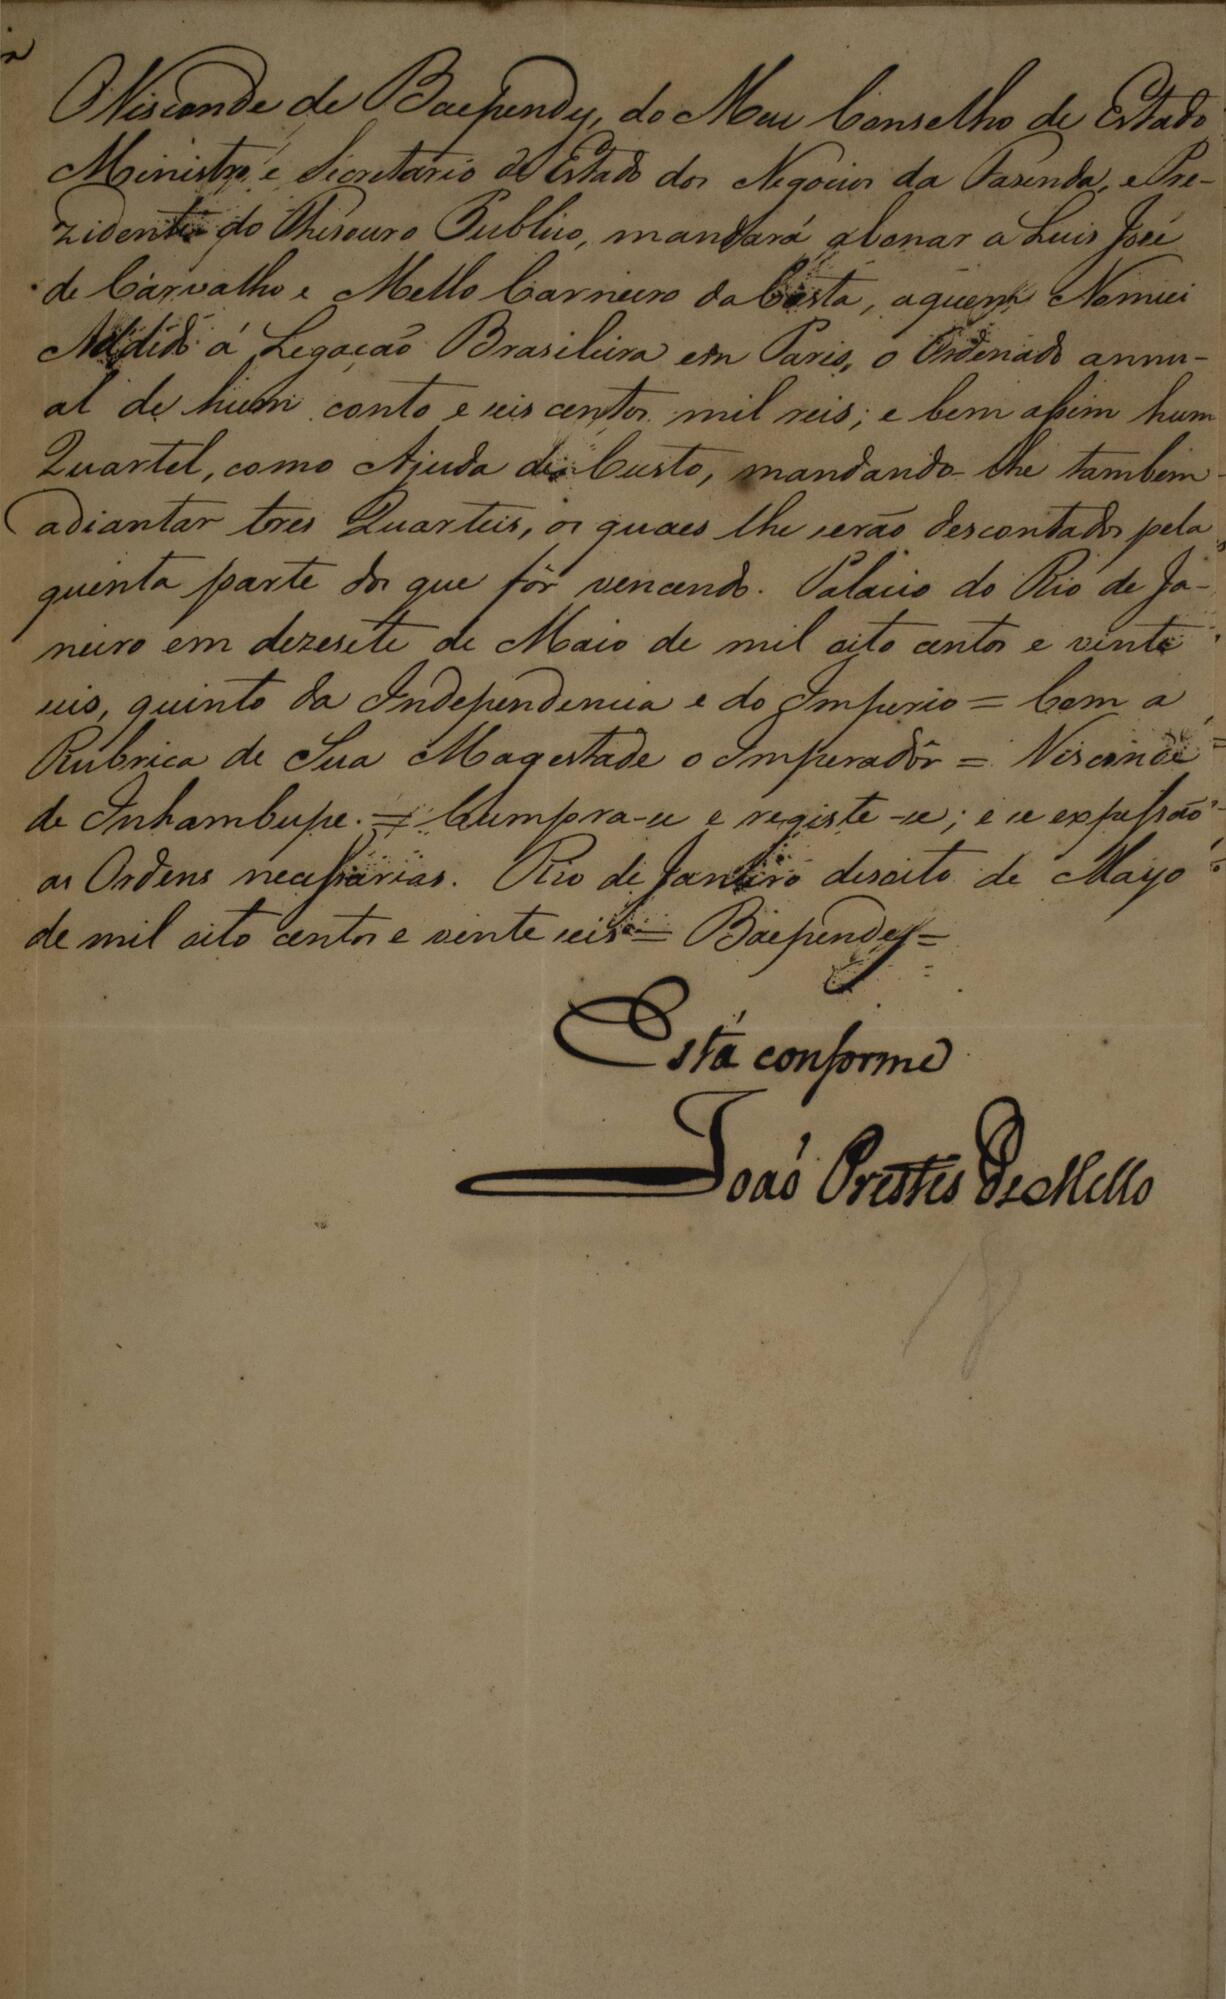 O Visconde de Baependy, do Meu Conselho de Estado
Ministro e Secretario de Estado dos Negocios da Fazenda, e Pre-
zidente do Thesouro Publico, mandará abonar a Luis José
de Carvalho e Mello Carneiro da Costa, aquem Nomiei
Addido á Legação Brasileira em Paris, o Ordenado annu-
al de hum conto e seis centos mil reis; e bem assim hum
Quartel, como Ajuda de Custo, mandando-lhe tambem
adiantar tres Quarteis, os quaes lhe serão descontados pela
quinta parte dos que fôr vencendo. Palacio do Rio de Ja-
neiro em dezesete de Maio de mil oito centos e vinte
seis, quinto da Independencia e do Imperio = Com a
Rubrica de Sua Magestade o Imperadôr = Visconde
de Inhambupe. = Cumpra-se e registe-se; e se expessão
as Ordens necessarias. Rio de Janeiro desoito de Mayo
de mil oito centos e vinte seis = Baependy =
Está conforme
João Prestes de Mello